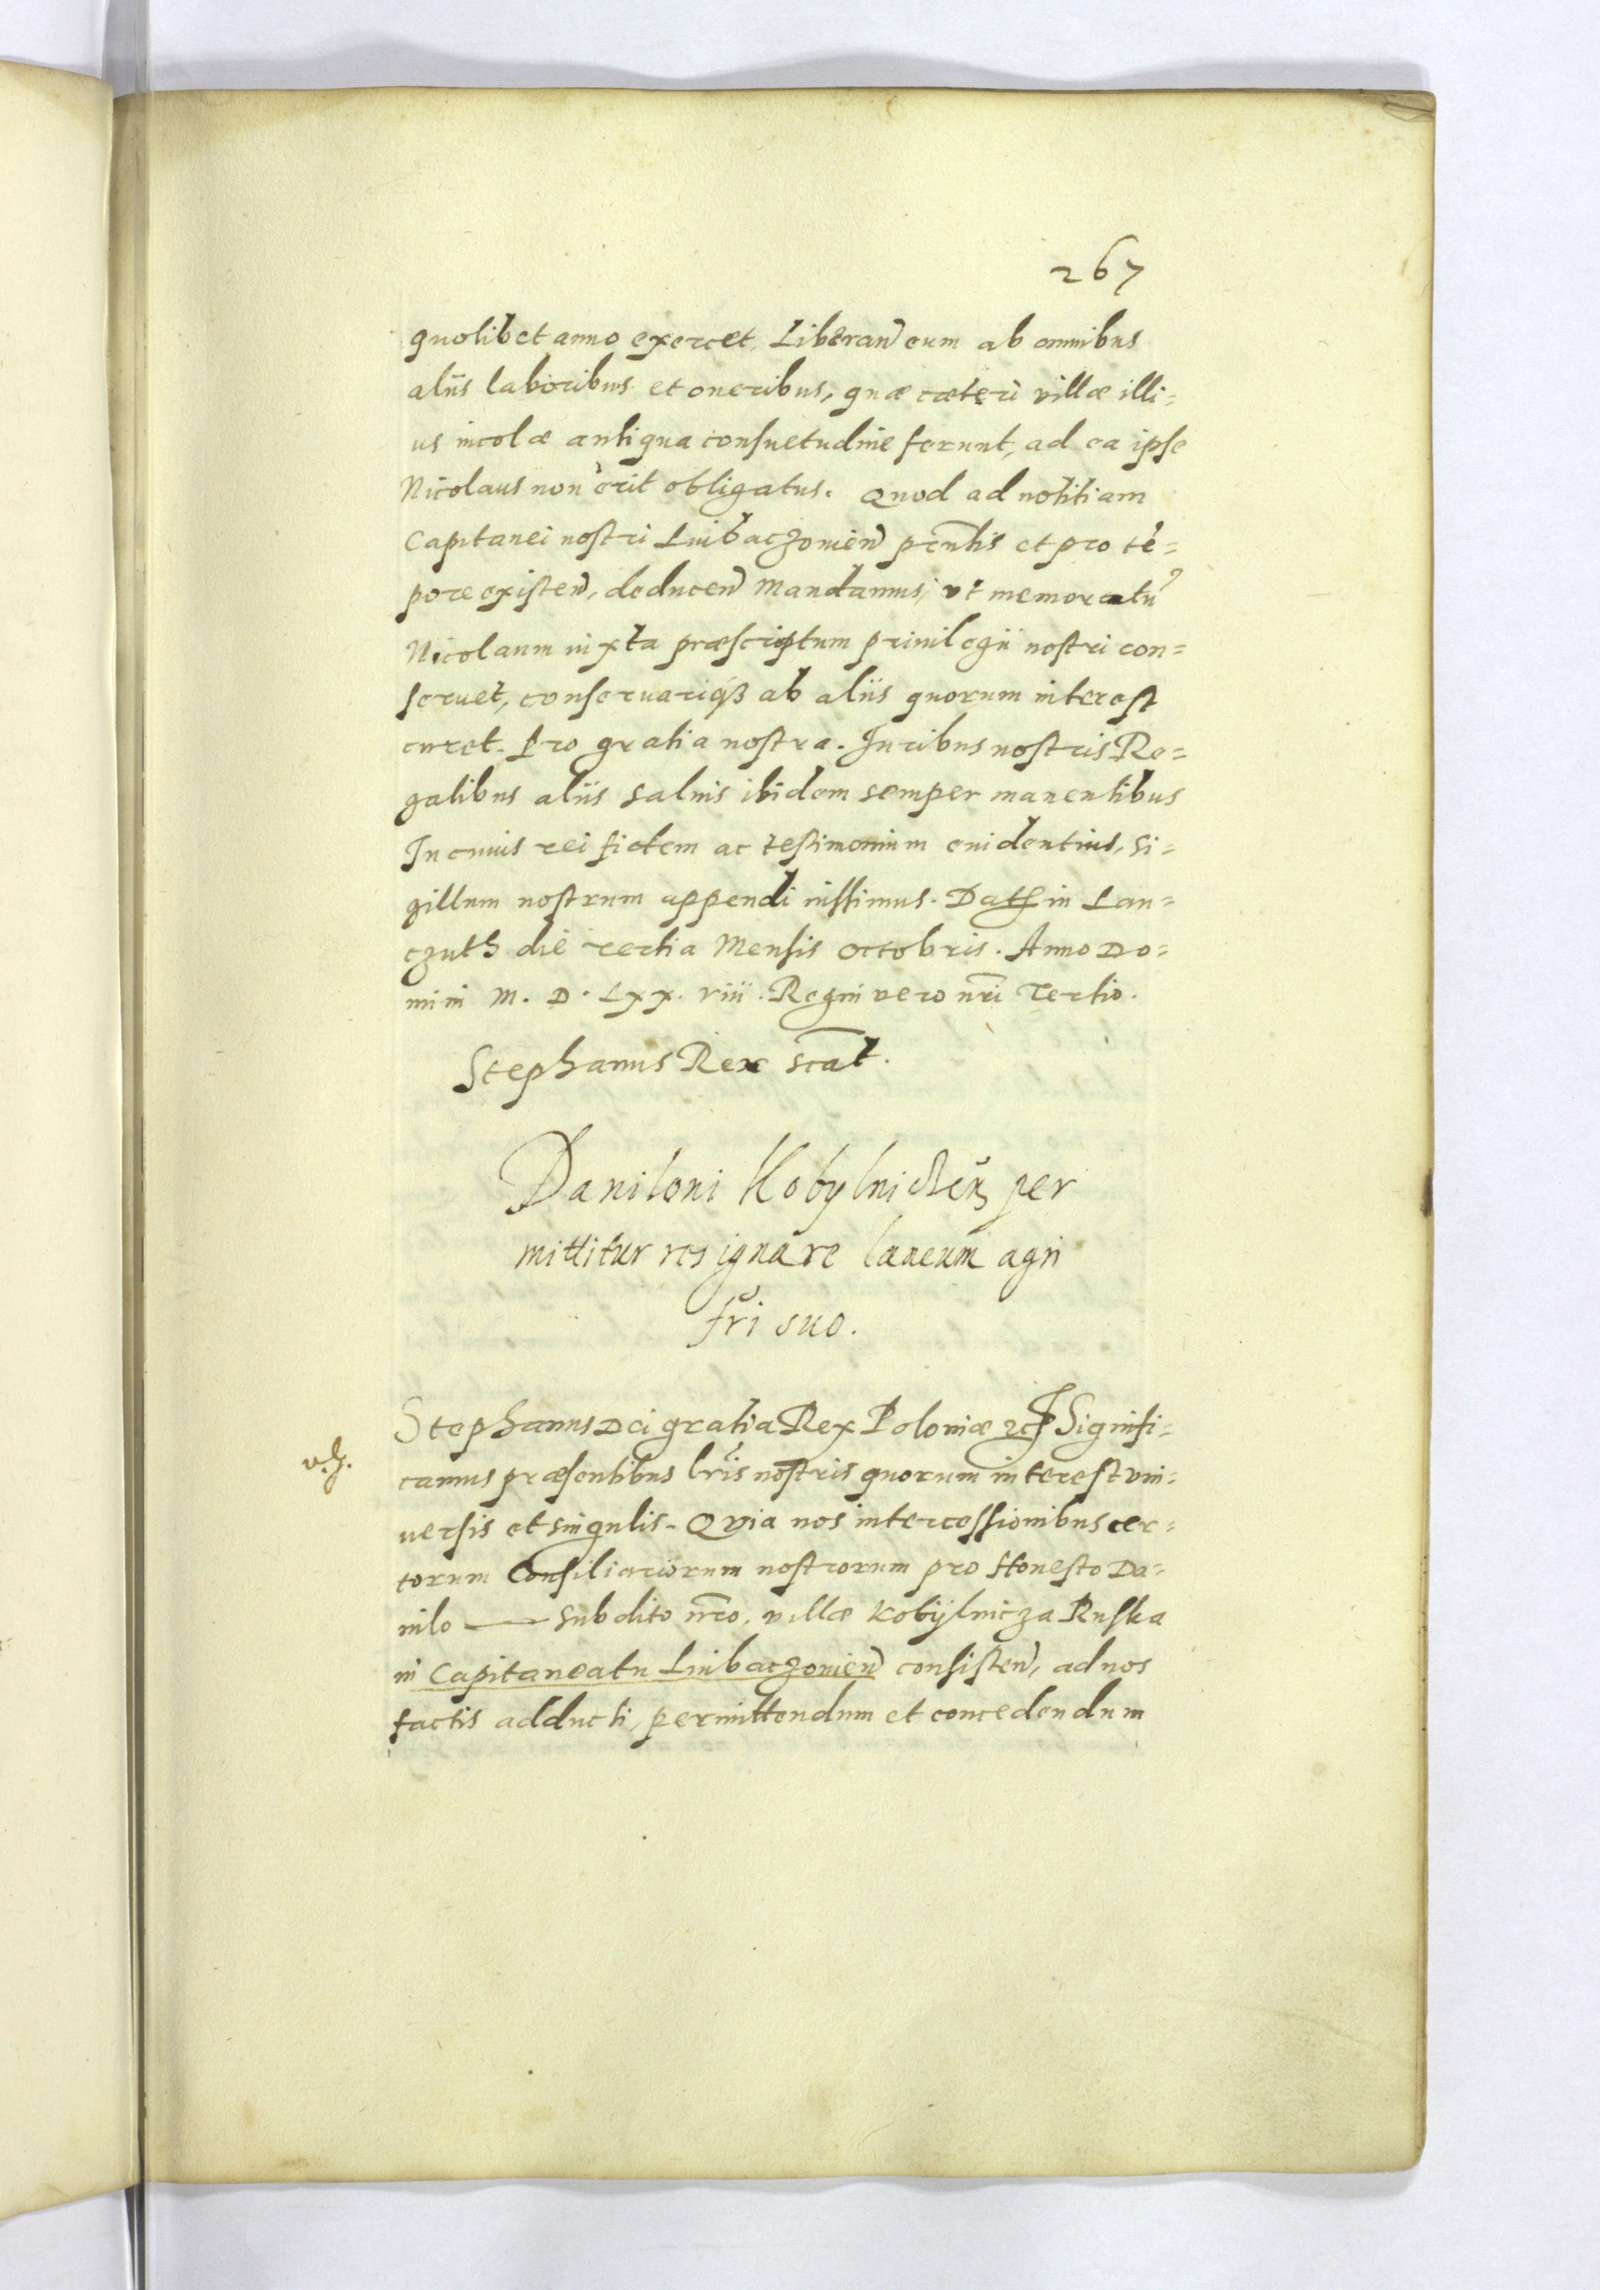 267
quolibet anno exercet. Liberañ eum ab omnibus
aliis laboribus et oneribus, quæ cæteri villæ illi=
us incolæ antiqua consuetudine ferunt, ad ea ipse
Nicolaus non erit obligatus. Quod ad notitiam
Capitanei nostri Liubaczonieñ pr̃ntis et pro tẽ=
pore existeñ, deduceñ Mandamus, vt memoratũ
Nicolaum iuxta præscriptum priuilegii nostri con=
seruet, conseruariq3 ab aliis quorum interest
curet. Pro gratia nostra. Iuribus nostris Re=
galibus aliis saluis ibidem semper manentibus
In cuius rei fidem ac testimonium euidentius, si=
gillum nostrum appendi iussimus. Dat in Lan=
czuth die tertia Mensis Octobris. Anno Do=
mini M. D. Lxx. viii. Regni vero nr̃i Tertio.
Stephanus Rex scãt.
Daniloni Kobylnicen per
mittitur resignare laneum agri
fr̃i suo.
Stephanus Dei gratia Rex Poloniæ etc Signifi=
camus præsentibus lr̃is nostris quorum interest vni=
uersis et singulis. Quia nos intercessionibus cer=
torum Consiliariorum nostrorum pro Honesto Da=
nilo — Subdito nr̃o, villæ Kobÿlnicza Ruska
in Capitaneatu Liubaczonieñ consisteñ, ad nos
factis adducti, permittendum et concedendum